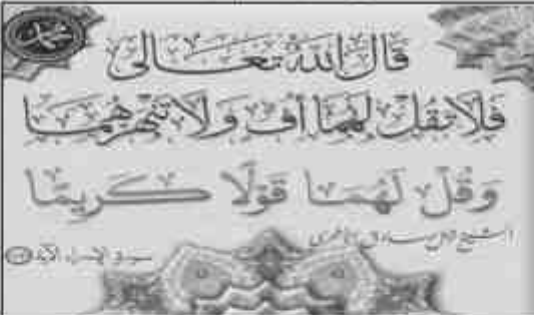 محمد
قال الله تعالى
فَلَا تَقُلْ لَهُمَا أُفٍّ وَلَا تَنْهَرْهُمَا
وَقُلْ لَهُمَا قَوْلًا كَرِيمًا
الشيخ
سورة الإسراء الآية